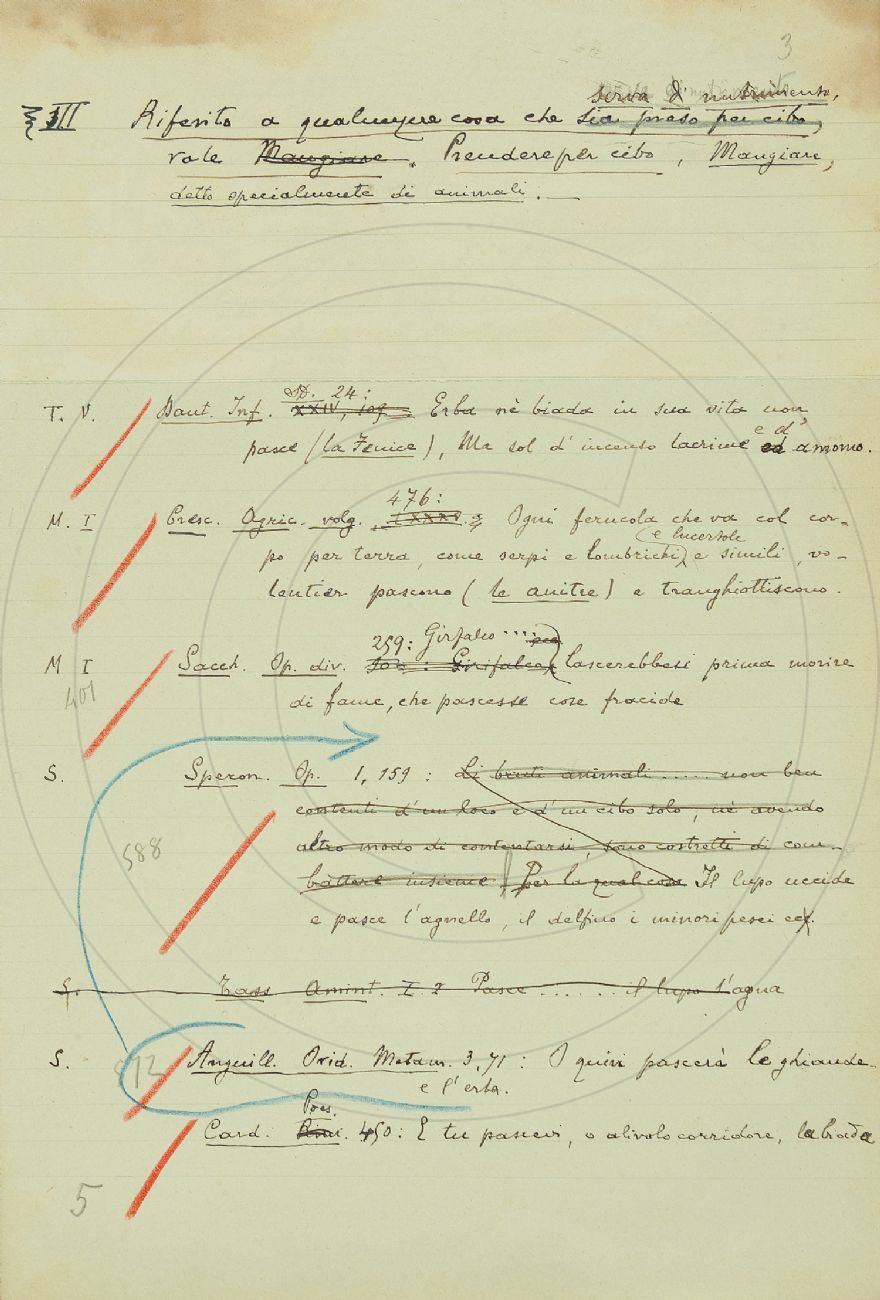 3
serva di nutrimento,
§ III Riferito a qualunque cosa che sia preso per cibo,
vale Mangiare. Prendere per cibo, Mangiare,
detto specialmente di animali. —
24:
T. V. Dant. Inf. XXIV, 109. Erba nè biada in sua vita non
e d'
pasce (la Fenice), Ma sol d'incenso lacrime ed amomo.
476:
M. I Cresc. Agric. volg. Ogni ferucola che va col cor-
e lucertole
po per terra, come serpi e lombrichi, e simili, vo-
lentier pascono (le anitre) e tranghiottiscono.
259: Girfalco ....
M I Sacch. Op. div. Girifalco lascerebbesi prima morire
401
di fame, che pascesse cose fracide
S. Speron. Op. 1, 159: Li bruti animali .... non ben
contenti d'un loco e d'un cibo solo, nè avendo
altro modo di contentarsi, sono costretti di com-
588
battere insieme, Per la qual cosa Il lupo uccide
e pasce l'agnello, il delfino i minori pesci ec.
S. Tass. Amint. I. 2 Pasce ...... il lupo l'agna
S. Anguill. Ovid. Metam. 3, 71: O quivi pascerà le ghiande
e l'erba.
Poes.
Card. Rime. 450: E tu pascevi, o alivolo corridore, la biada
5